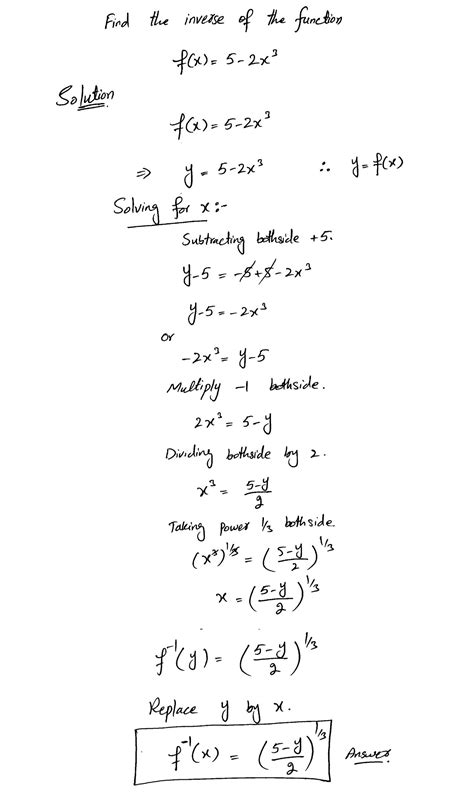 Find the inverse of the function
f(x) = 5-2x³
Solution
f(x) = 5-2x³
⇒ y = 5-2x³ ∴ y = f(x)
Solving for x:-
Subtracting bothside +5.
y-5 = -5+5-2x³
y-5 = -2x³
or
-2x³ = y-5
Multiply -1 bothside.
2x³ = 5-y
Dividing bothside by 2.
x³ = (5-y)/2
Taking power 1/3 bothside.
(x³)^1/3 = ((5-y)/2)^1/3
x = ((5-y)/2)^1/3
f⁻¹(y) = ((5-y)/2)^1/3
Replace y by x.
f⁻¹(x) = ((5-y)/2)^1/3 Answer